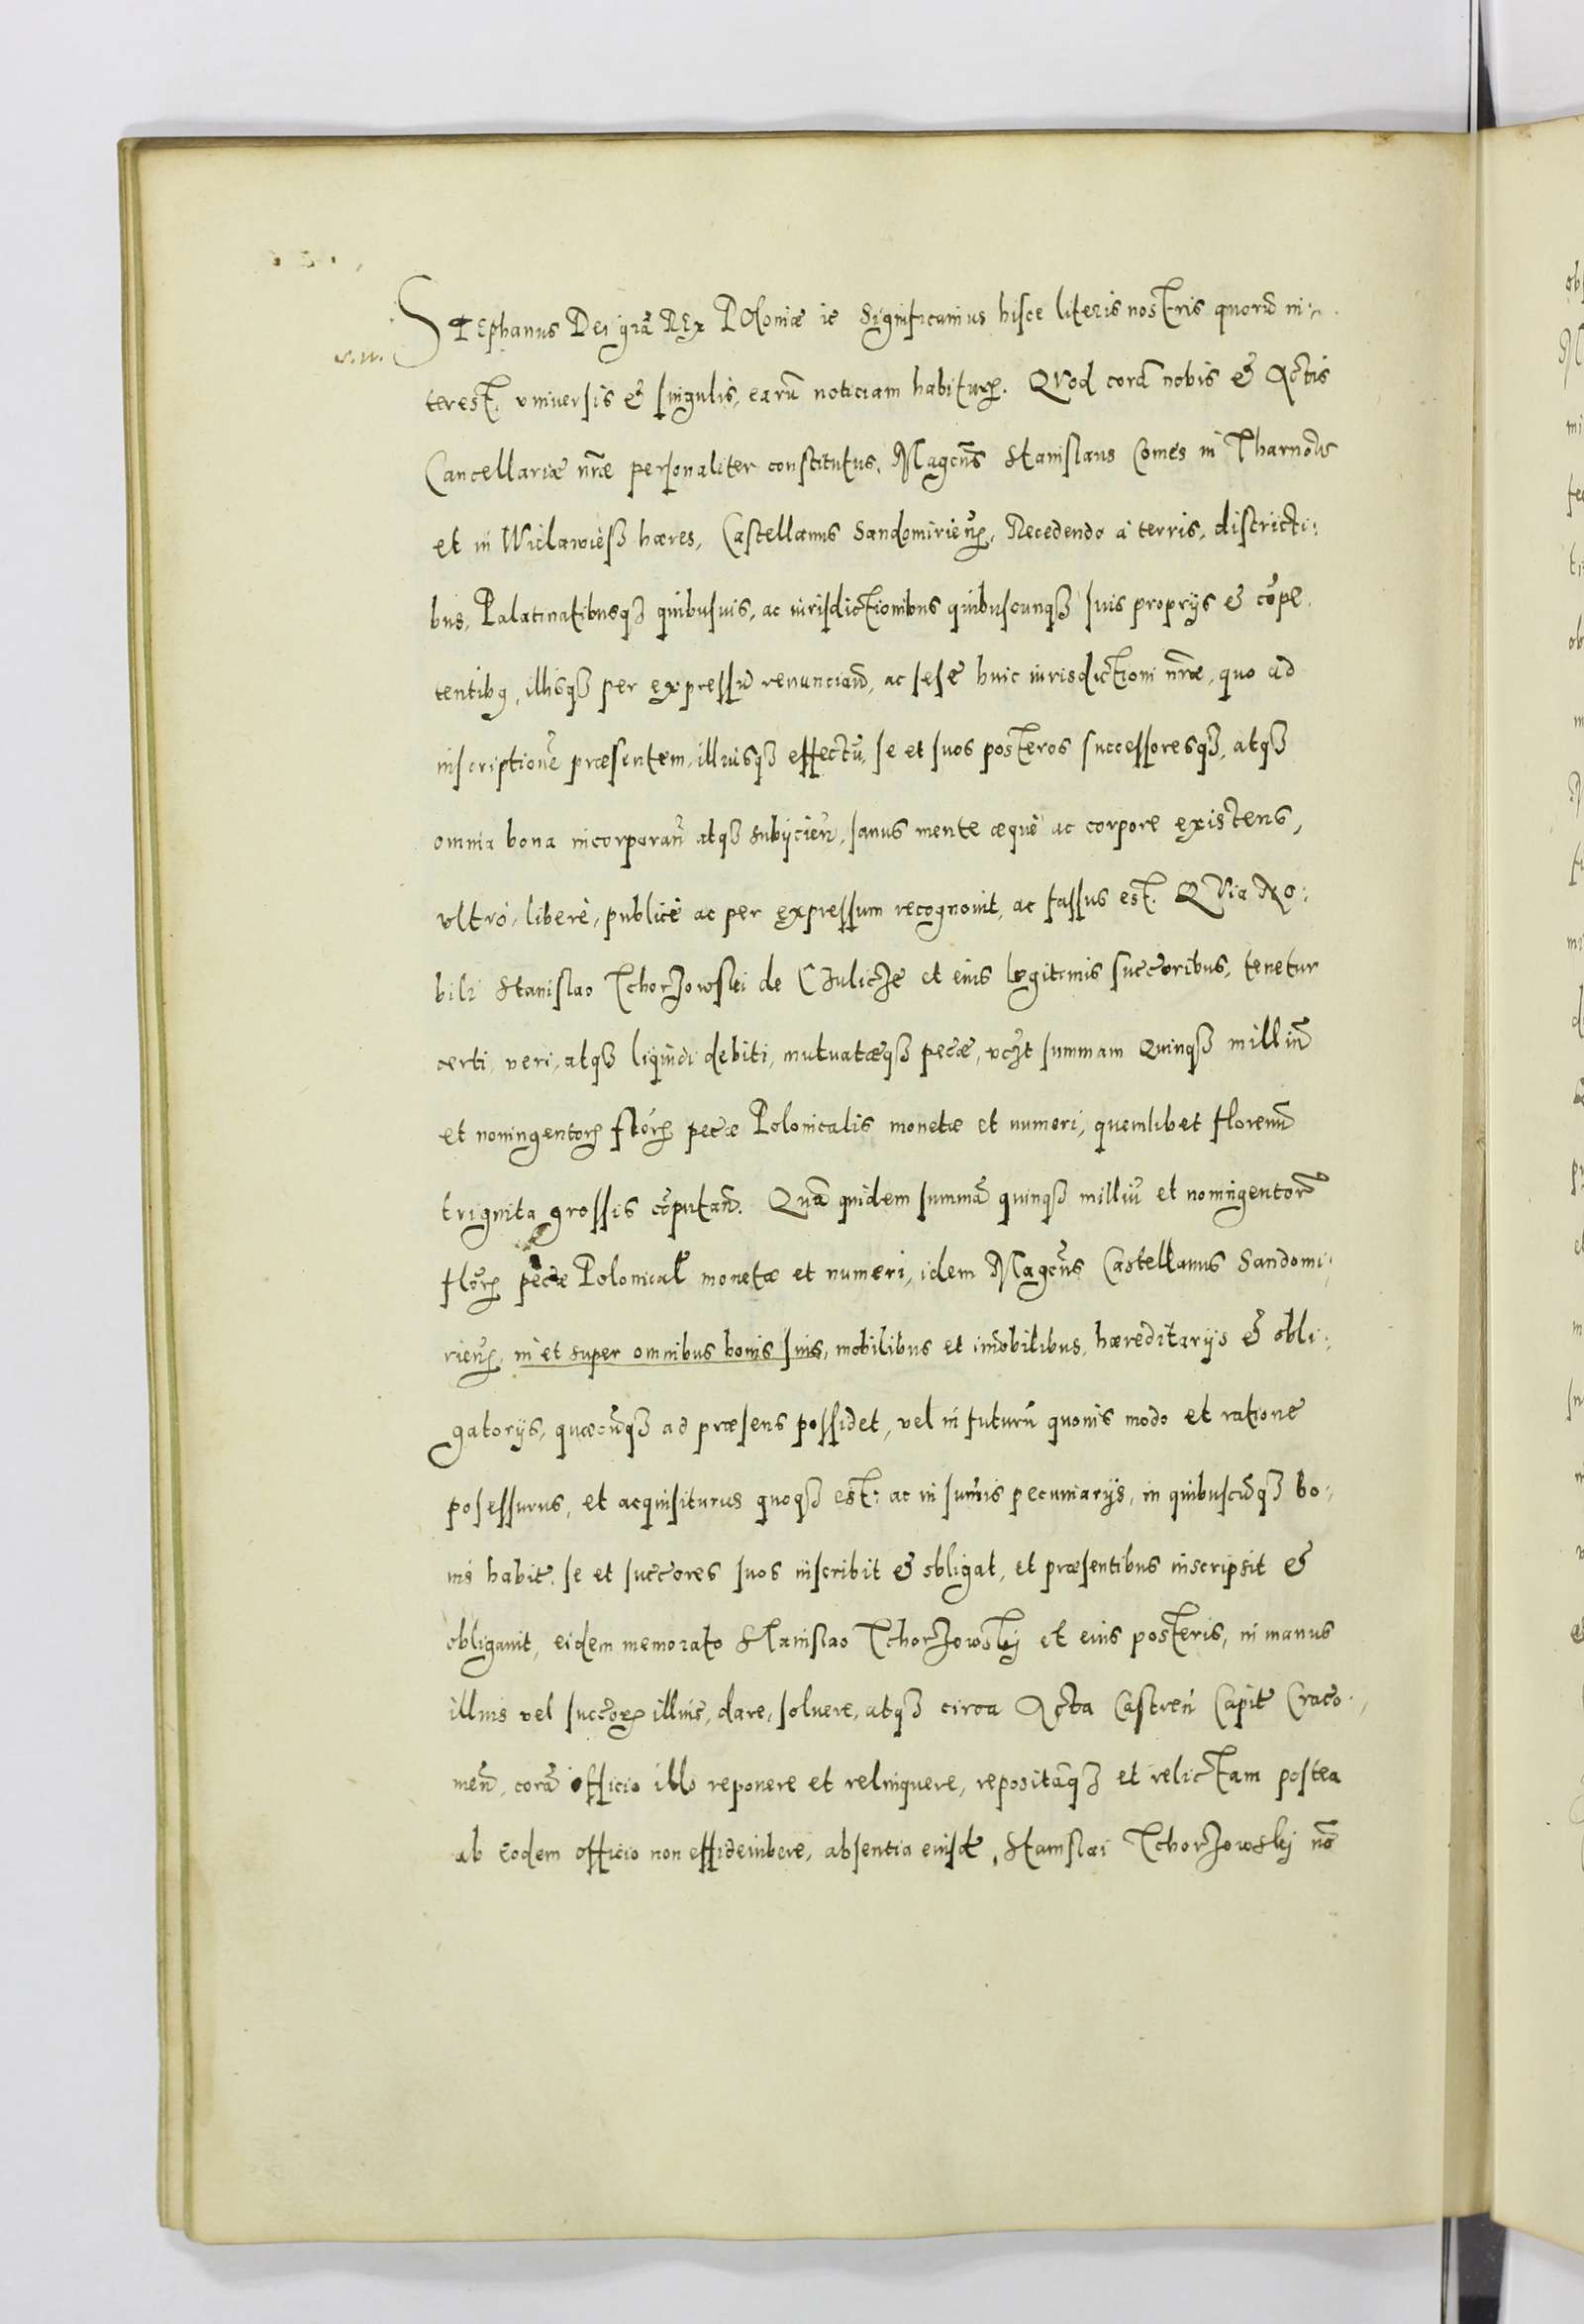 STEphanus Dei gra͂ REx POloniæ ic Significamus hisce literis nostris quorũ in:
terest. vniuersis & singulis, earũ noticiam habituꝝ. QVod corã nobis & Actis
Cancellariæ nr̃æ personaliter constitutus, Magcũs Stanislaus Comes in Tharnow
et in Wielawieß hæres, Castellanus Sandomirieñ, Recedendo á terris, districti:
bus, Palatinatibusqꝫ quibusuis, ac iurisdictionibus quibuscunqꝫ suis proprijs & cõpe.
tentibꝰ, illisqꝫ per expressũ renunciañ, ac sese huic iurisdictioni nr̃æ, quo ad
inscriptionẽ præsentem, illiusqꝫ effectũ, se et suos posteros successoresqꝫ, atqꝫ
omnia bona incorporañ atqꝫ subijcieñ, sanus mente æquè ac corpore existens,
vltrò, liberè, publicè ac per expressum recognouit, ac fassus est. QVia No:
bili Stanislao Tchorzowski de Czulicze et eius legitimis succ̃oribus, tenetur
certi, veri, atqꝫ liquidi debiti, mutuatæqꝫ pec̃æ, vcꝫt summam Quinqꝫ milliũ
et noningentoꝝ flór̃ꝝ pec̃æ Polonicalis monetæ et numeri, quemlibet florenũ
triginta grossis cõputañ. Quã quidem summã quinqꝫ milliũ et noningentoꝝ
flõrꝝ pec̃æ Polonical monetæ et numeri, idem Magcũs Castellanus Sandomi:
rieñ, in et super omnibus bonis suis, mobilibus et im̃obilibus, hæreditarijs & obli:
gatorijs, quæcũqꝫ ad præsens possidet, vel in futurũ quouis modo et ratione
posessurus, et acquisiturus quoqꝫ est: ac in sum̃is pecuniarijs, in quibuscũqꝫ bo:
nis habit̃. se et succ̃ores suos inscribit & obligat, et præsentibus inscripsit &
obligauit, eidem memorato Stanislao Tchorzowskj et eius posteris, in manus
illius vel succ̃oꝝ illius, dare, soluere, atqꝫ circa Acta Castreñ Capit̃ Craco:
uieñ, corã officio illo reponere et relinquere, repositãqꝫ et relictam postea
ab eodem officio non effideiubere, absentia eiusd̃ Stanislai Tchorzowskj nõ